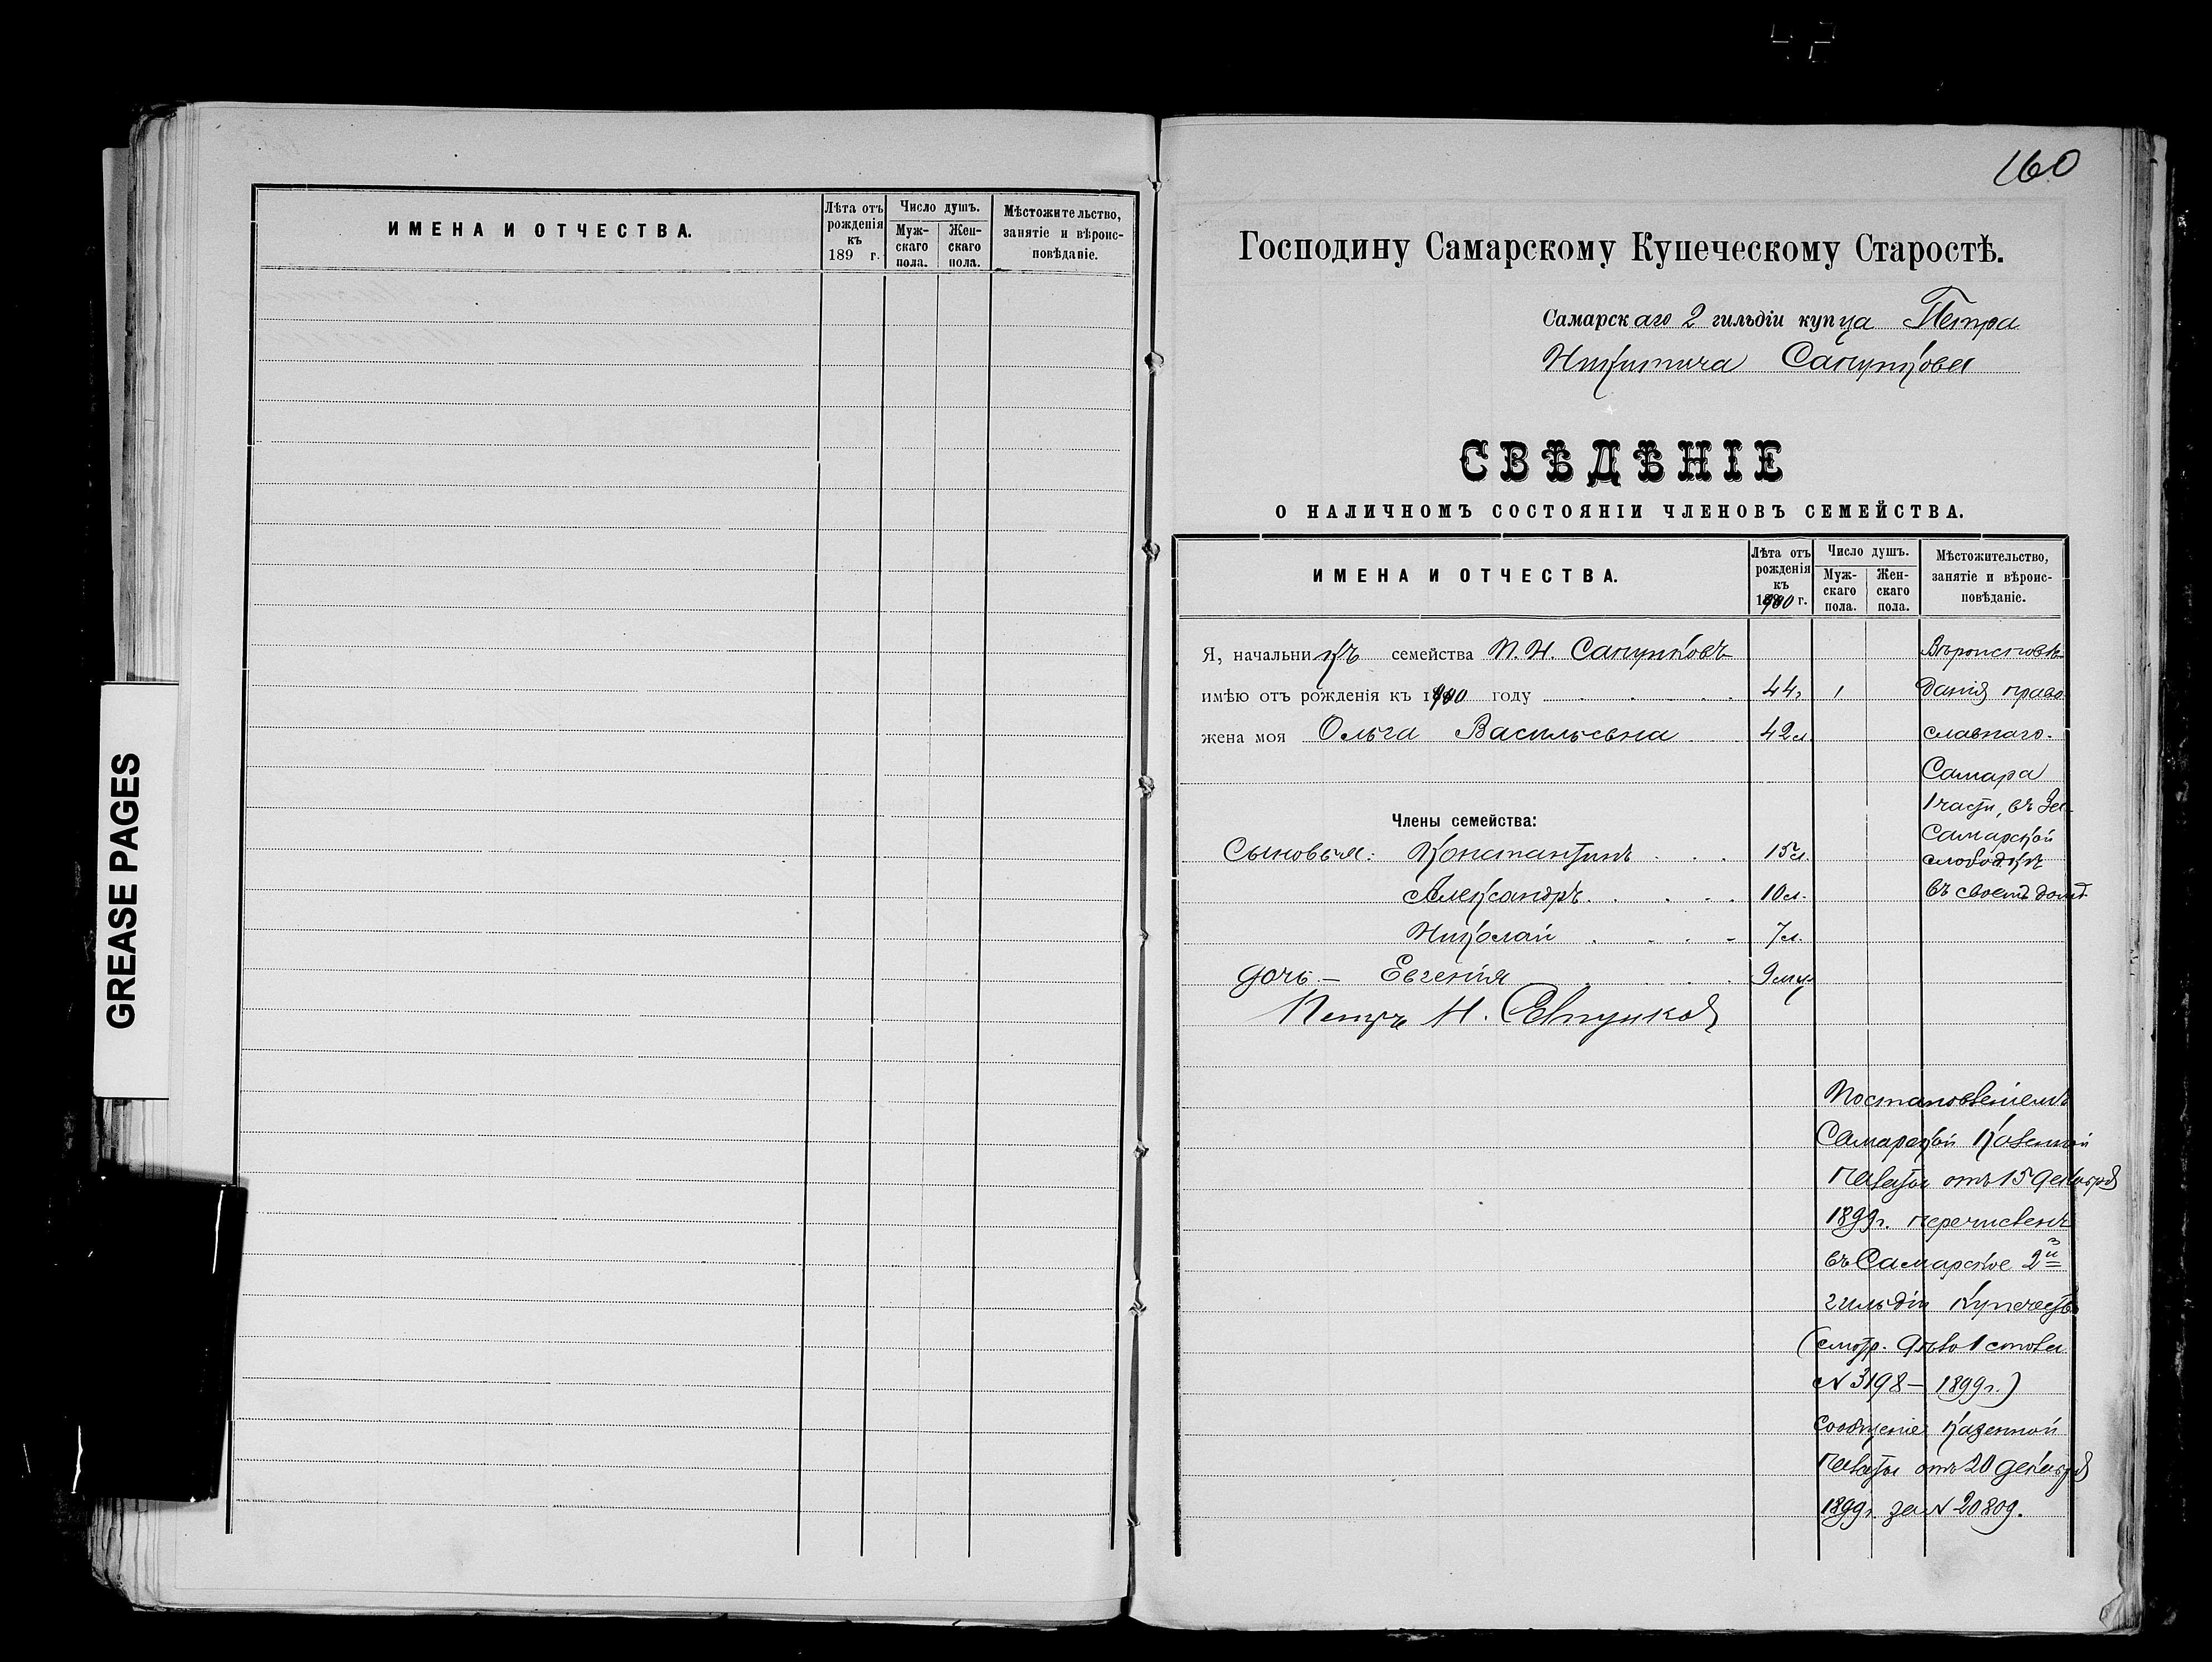 GREASE PAGES
ИМЕНА И ОТЧЕСТВА.
Лѣта отъ рожденія къ 189 г.
Число душъ.
Муж-скаго пола.
Жен-скаго пола.
Мѣстожительство, занятіе и вѣроис-повѣданіе.
160
Господину Самарскому Купеческому Старостѣ.
Самарскаго 2 гильдіи купца Петра
Никитича Сапункова
СВѢДѢНІЕ
О НАЛИЧНОМЪ СОСТОЯНІИ ЧЛЕНОВЪ СЕМЕЙСТВА.
ИМЕНА И ОТЧЕСТВА.
Лѣта отъ рожденія къ 1900 г.
Число душъ.
Муж-скаго пола.
Жен-скаго пола.
Мѣстожительство, занятіе и вѣроис-повѣданіе.
Я, начальникъ семейства П. Н. Сапунковъ Вѣроисповѣ-
имѣю отъ рожденія къ 1900 году 44 г. 1 данія право
жена моя Ольга Васильевна 42 л. славнаго.
Самара
1 части, въ За-
Члены семейства:
Самарской
Сыновья: Константинъ 15 л. слободкѣ
Александръ 10 л. въ своемъ домѣ
Николай 7 л.
дочь — Евгенія 9 мц.
Петръ Н. Сапунков
Постановленіемъ
Самарской Казенной
Палаты отъ 15 декабря
1899 г. перечисленъ
въ Самарское 2й
гильдіи Купечество
(смотр. дѣло 1 стола
№ 3198 — 1899 г.)
сообщеніе Казенной
Палаты отъ 20 декабря
1899 г. за № 20809.